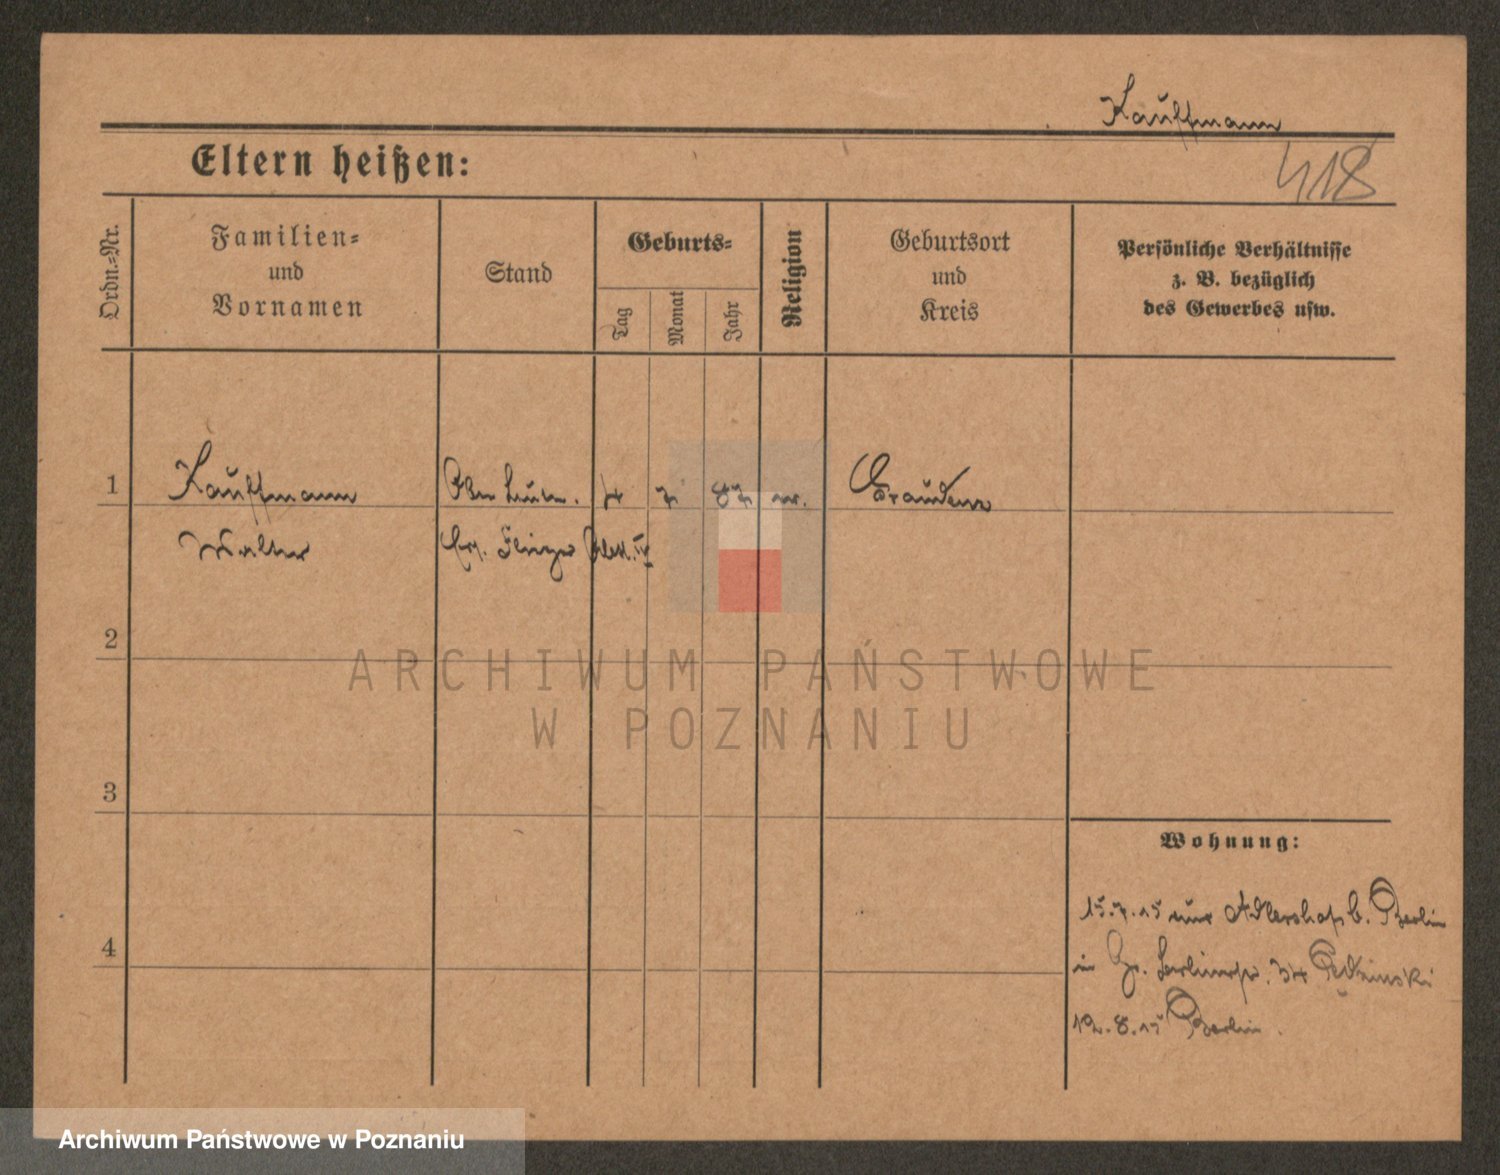 Kauffmann
418
Eltern heißen:
Ordn.-Nr.
Familien-
und
Vornamen
Stand
Geburts-
Tag
Monat
Jahr
Religion
Geburtsort
und
Kreis
Persönliche Verhältnisse
z. B. bezüglich
des Gewerbes usw.
1
Kauffmann
Ober Leutn. 4 7 87 ev. Graudenz
Walter
Ers. Flieger Abtl. IV
2
ARCHIWUM PAŃSTWOWE
W POZNANIU
3
Wohnung:
4
15.7.15 aus Adlershof b. Berlin
in Gr. Berlinerstr. 34
12.8.15 Berlin.
Archiwum Państwowe w Poznaniu